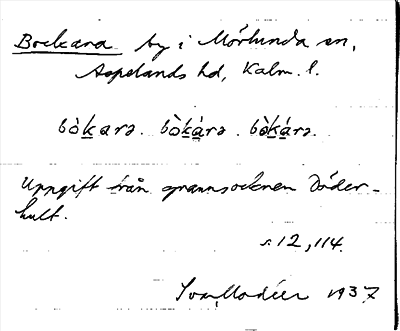 Bockara by i Mörlunda sn,
Aspelands hd, Kalm. l.
bòkarə. bòkárə. bòkárə.
Uppgift från grannsocknen Döder-
hult.
s. 12, 114.
Ivar Modéer 1937